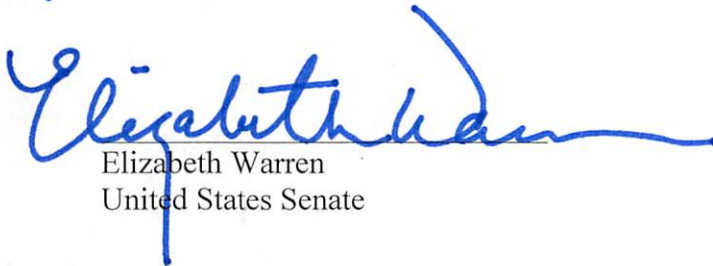 Elizabeth Warren
Elizabeth Warren
United States Senate